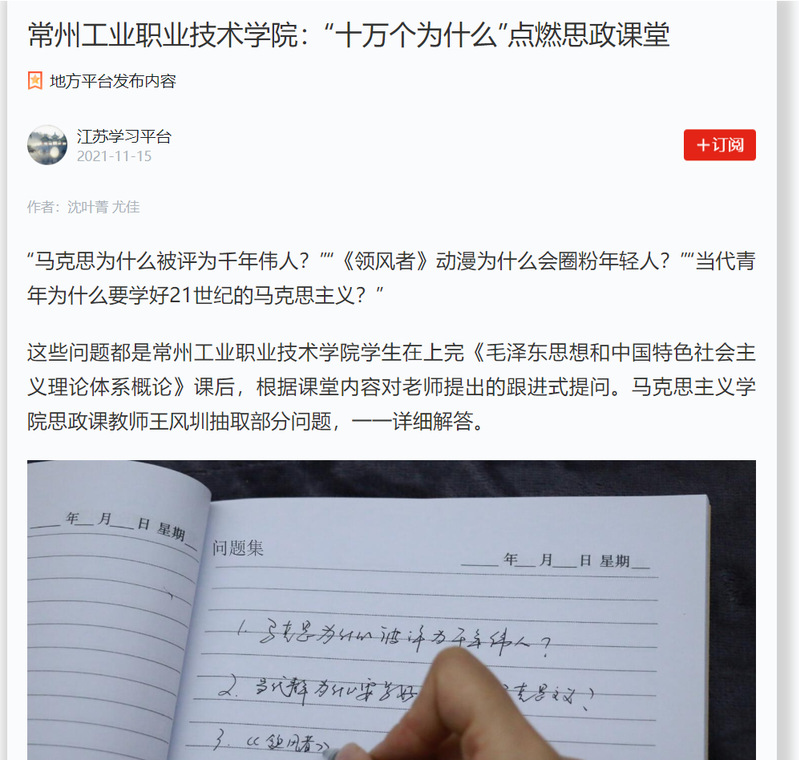 常州工业职业技术学院：“十万个为什么”点燃思政课堂
地方平台发布内容
江苏学习平台
2021-11-15
＋订阅
作者：沈叶菁 尤佳
“马克思为什么被评为千年伟人？”“《领风者》动漫为什么会圈粉年轻人？”“当代青
年为什么要学好21世纪的马克思主义？”
这些问题都是常州工业职业技术学院学生在上完《毛泽东思想和中国特色社会主
义理论体系概论》课后，根据课堂内容对老师提出的跟进式提问。马克思主义学
院思政课教师王风圳抽取部分问题，一一详细解答。
年 月 日 星期
问题集
年 月 日 星期
1. 马克思为什么被评为千年伟人？
2. 当代青年为什么要学好 克思主义？
3. 《领风者》